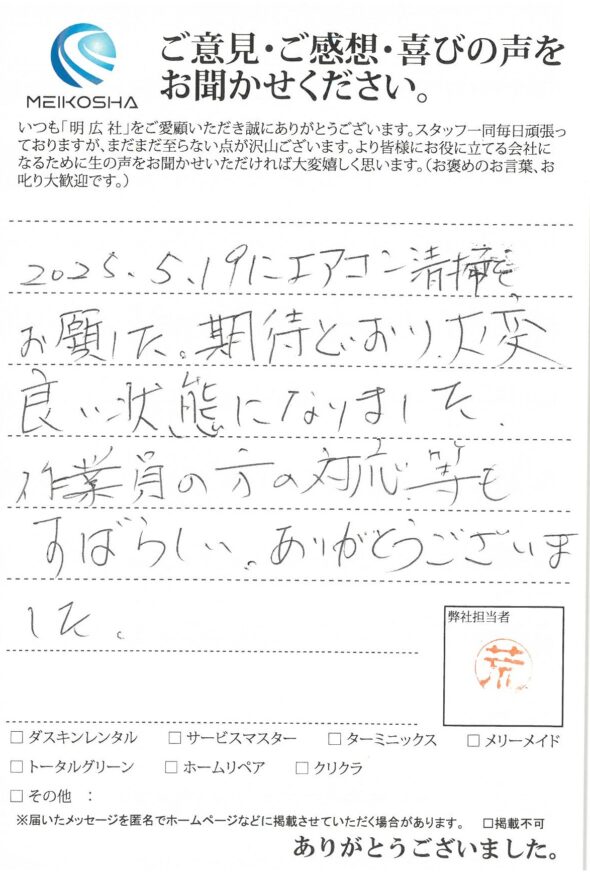 MEIKOSHA
ご意見・ご感想・喜びの声を
お聞かせください。
いつも「明広社」をご愛顧いただき誠にありがとうございます。スタッフ一同毎日頑張っ
ておりますが、まだまだ至らない点が沢山ございます。より皆様にお役に立てる会社に
なるために生の声をお聞かせいただければ大変嬉しく思います。（お褒めのお言葉、お
叱り大歓迎です。）
2025.5.19にエアコン清掃を
お願した。期待どおり、大変
良い状態になりました。
作業員の方の対応等も
すばらしい。ありがとうございま
した。
弊社担当者
荒
□ ダスキンレンタル □ サービスマスター □ ターミニックス □ メリーメイド
□ トータルグリーン □ ホームリペア □ クリクラ
□ その他 ：
※届いたメッセージを匿名でホームページなどに掲載させていただく場合があります。 □掲載不可
ありがとうございました。